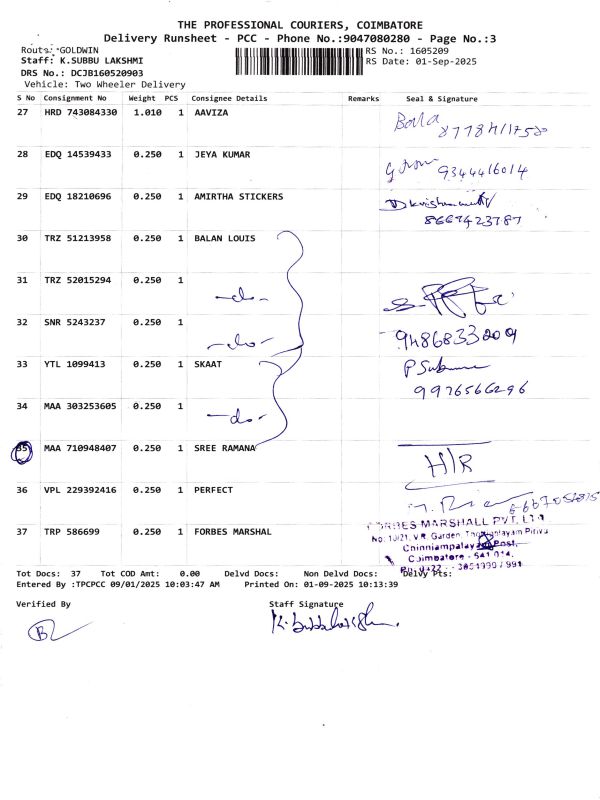 THE PROFESSIONAL COURIERS, COIMBATORE
Delivery Runsheet - PCC - Phone No.:9047080280 - Page No.:3
Route: GOLDWIN RS No.: 1605209
Staff: K.SUBBU LAKSHMI RS Date: 01-Sep-2025
DRS No.: DCJB160520903
Vehicle: Two Wheeler Delivery
S No Consignment No Weight PCS Consignee Details Remarks Seal & Signature
27 HRD 743084330 1.010 1 AAVIZA
28 EDQ 14539433 0.250 1 JEYA KUMAR
9344416014
29 EDQ 18210696 0.250 1 AMIRTHA STICKERS
8667423787
30 TRZ 51213958 0.250 1 BALAN LOUIS
31 TRZ 52015294 0.250 1 -do-
32 SNR 5243237 0.250 1 -do-
9486833209
33 YTL 1099413 0.250 1 SKAAT
9976566296
34 MAA 303253605 0.250 1 -do-
35 MAA 710948407 0.250 1 SREE RAMANA H/R
36 VPL 229392416 0.250 1 PERFECT
37 TRP 586699 0.250 1 FORBES MARSHAL
FORBES MARSHALL PVT. LTD
No: 10/21, V.R. Garden,
Chinniampalayam Post,
Coimbatore - 641 014.
Tot Docs: 37 Tot COD Amt: 0.00 Delvd Docs: Non Delvd Docs: Delvy Pts:
Entered By :TPCPCC 09/01/2025 10:03:47 AM Printed On: 01-09-2025 10:13:39
Verified By Staff Signature
K. Subbulakshmi